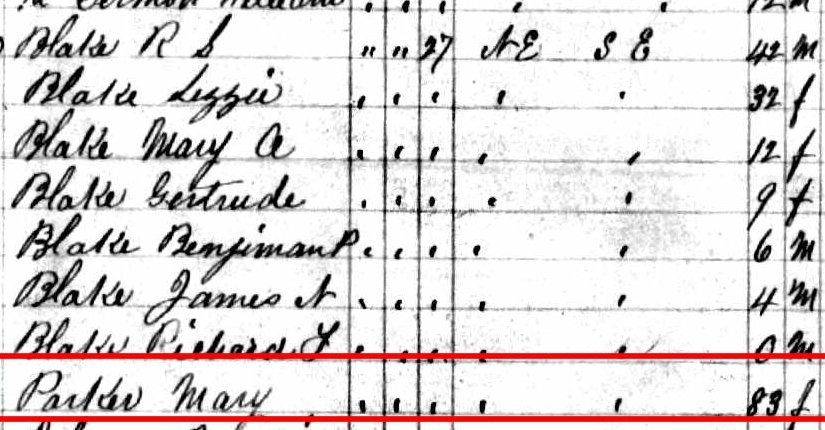 Blake R S " " 27 NE S E 42 m
Blake Lizzie " " " " " 32 f
Blake Mary A " " " " " 12 f
Blake Gertrude " " " " " 9 f
Blake Benjiman P " " " " " 6 m
Blake James N " " " " " 4 m
Blake Richard " " " " " 0 m
Parker Mary " " " " " 83 f